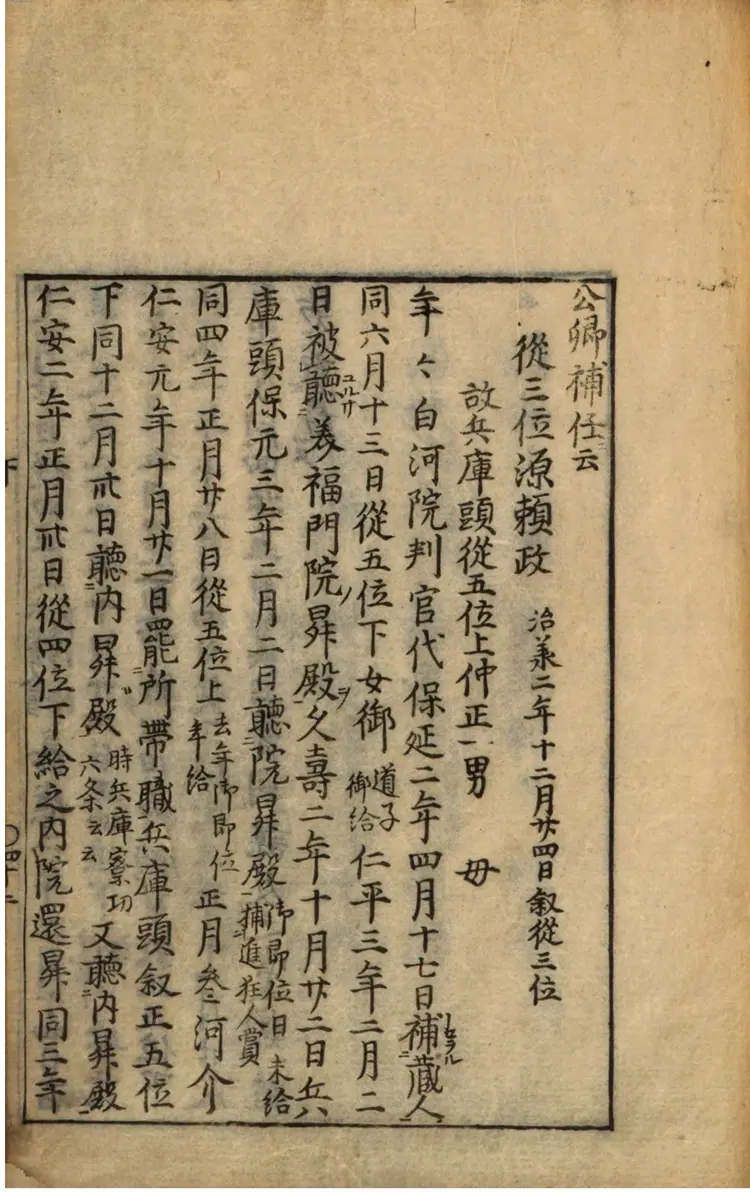 公卿補任云
從三位源頼政 治承二年十二月廿四日叙從三位
故兵庫頭從五位上仲正一男 母
年々白河院判官代保延二年四月十七日補セラル蔵人ニ
同六月十三日從五位下女御道子御給仁平三年二月二
日被聴ユルサ美福門院ノ昇殿ヲ久壽二年十月廿二日兵
庫頭保元三年二月二日聽院昇殿御即位日捕進狂人賞未給
同四年正月廿八日從五位上去年御即位年給正月叄河介
仁安元年十月廿一日罷所帯職兵庫頭叙正五位
下同十二月卅日聽内昇殿時兵庫寮功六条云云又聽内昇殿
仁安二年正月卅日從四位下給之内院還昇同三年